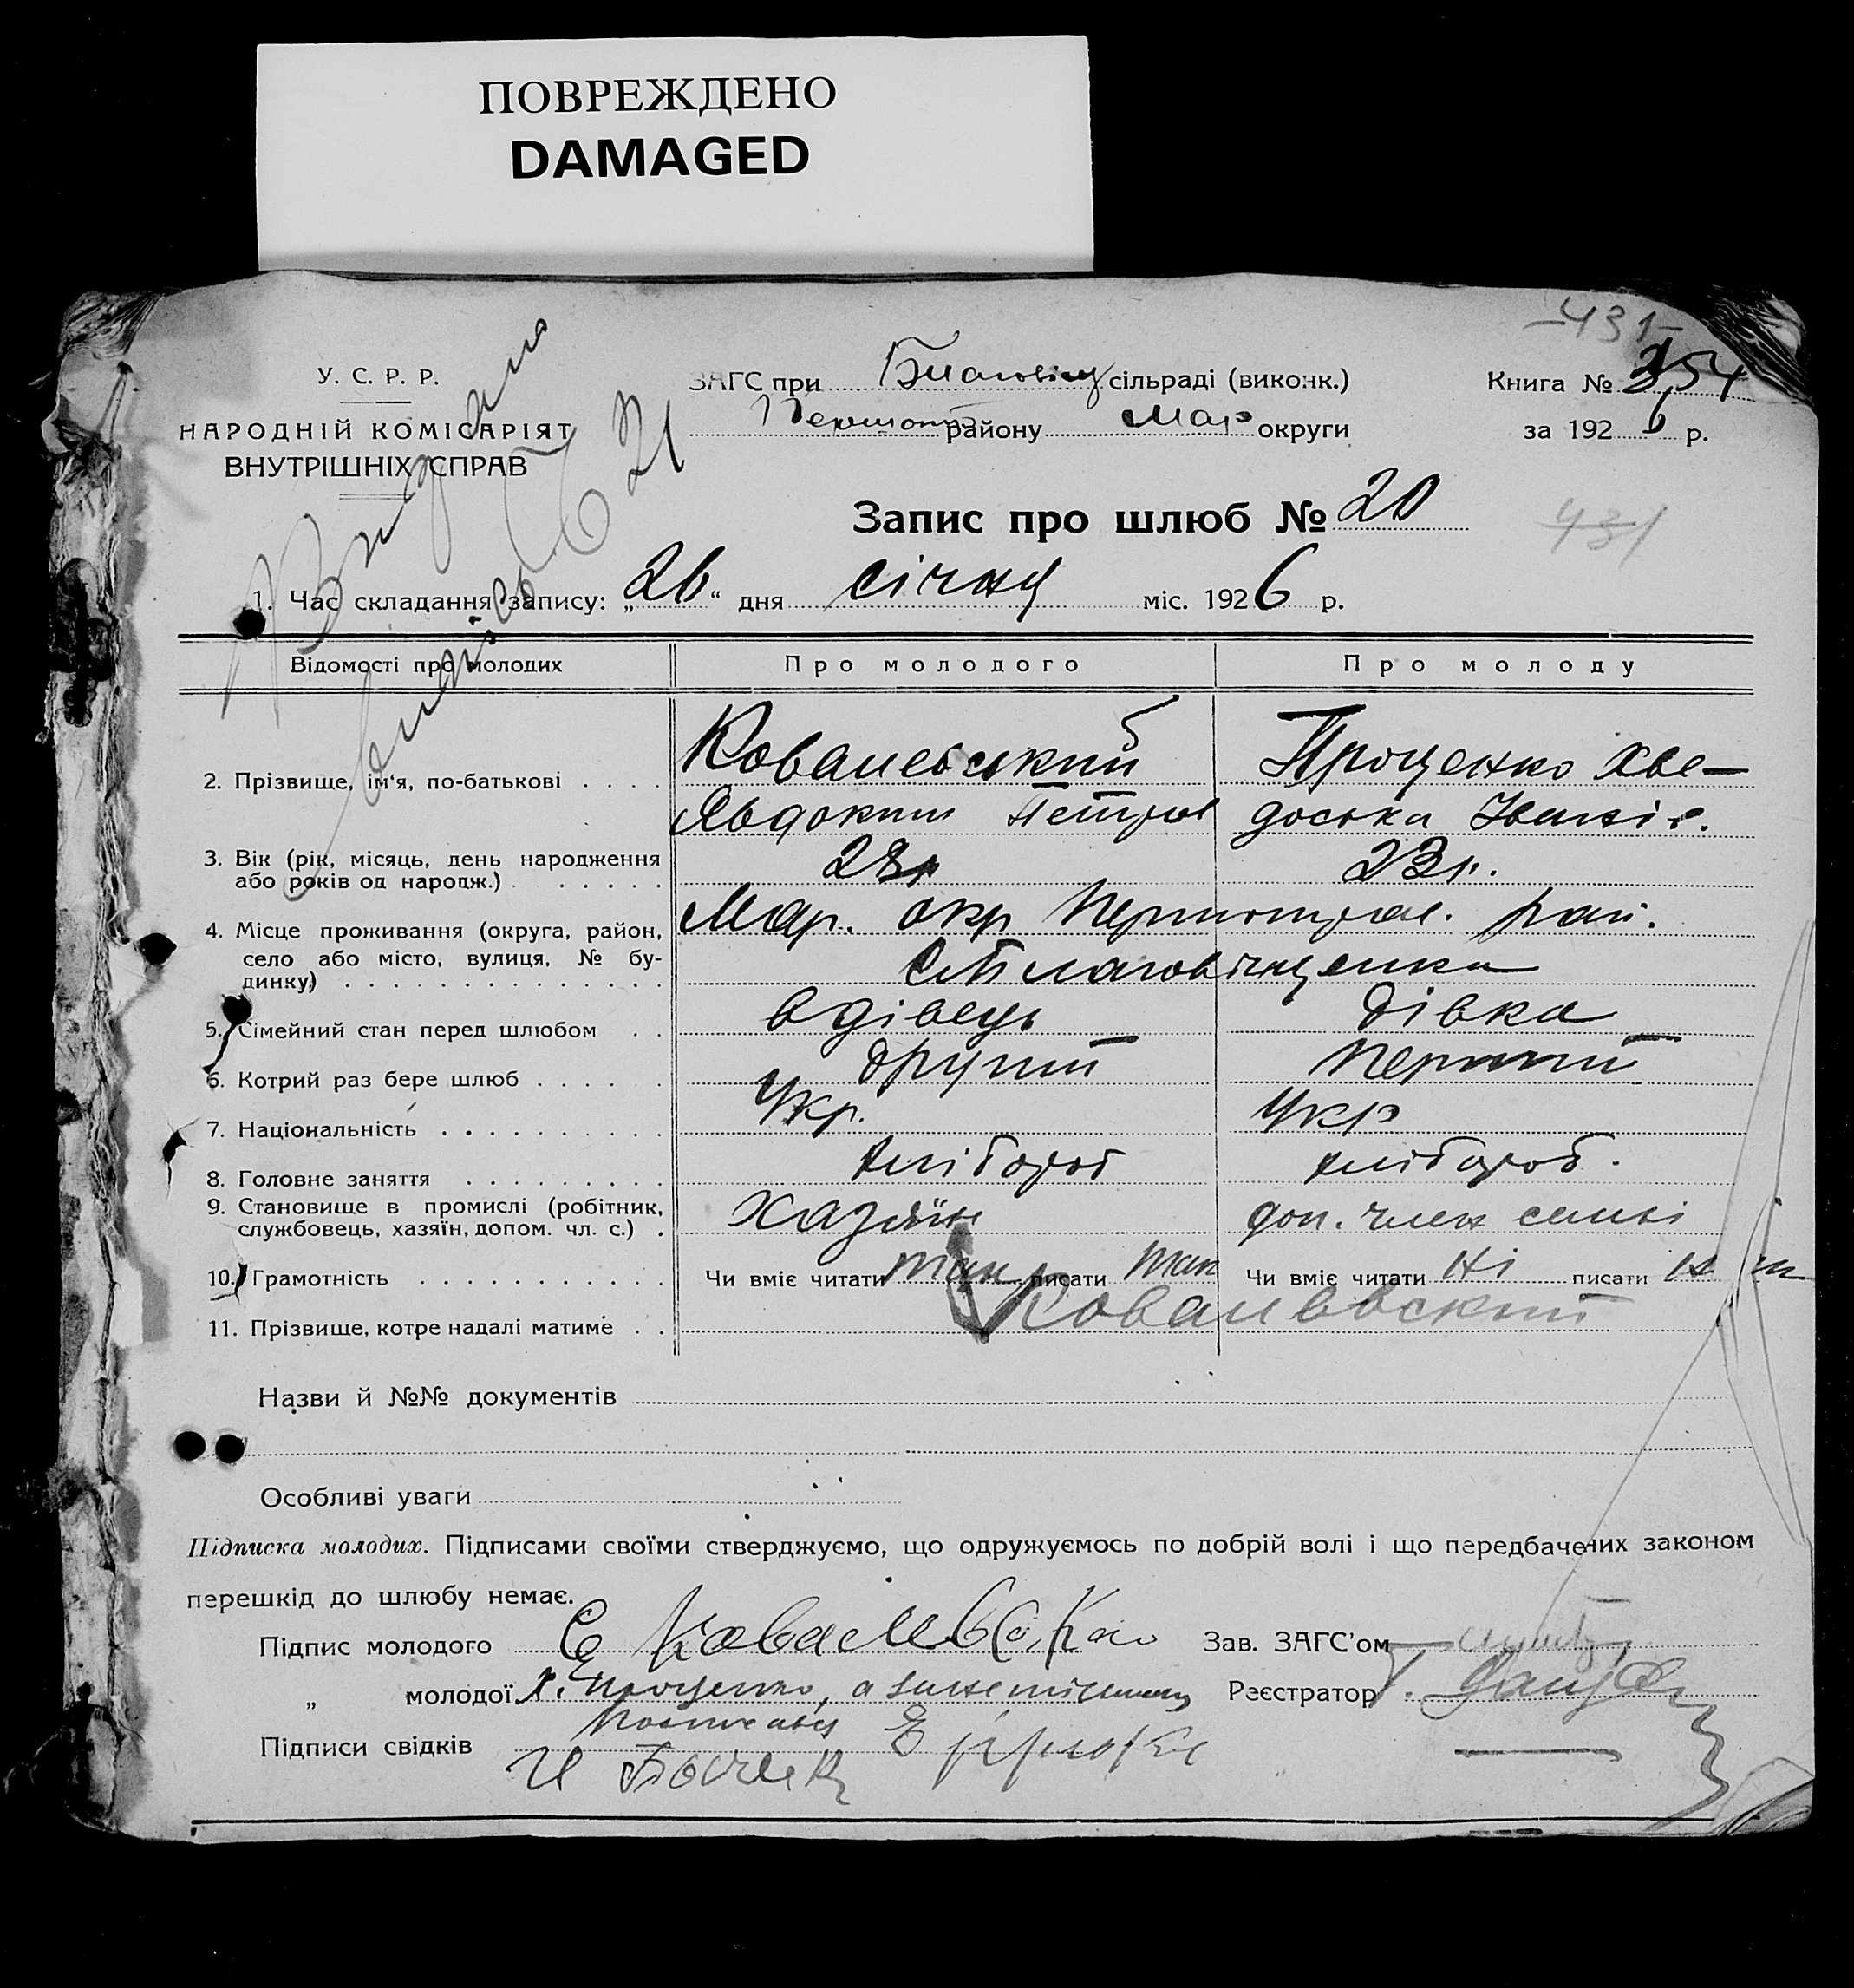 ПОВРЕЖДЕНО
DAMAGED
431
У. С. Р. Р.
НАРОДНІЙ КОМІСАРІЯТ
ВНУТРІШНІХ СПРАВ
ЗАГС при Благовіщ сільраді (виконк.)
району Мар округи
Книга № 54
за 1926 р.
Запис про шлюб № 20
431
1. Час складання запису: „26“ дня січня міс. 1926 р.
Відомості про молодих Про молодого Про молоду
2. Прізвище, ім'я, по-батькові Ковалевський Проценко Хве-
Явдоким Петров доська Іванів.
3. Вік (рік, місяць, день народження
або років од народж.) 28р 23р.
4. Місце проживання (округа, район, Мар. окр Першотрав. рай.
село або місто, вулиця, № бу-
динку) с Благовіщенка
5. Сімейний стан перед шлюбом вдівець дівка
6. Котрий раз бере шлюб другий перший
7. Національність Укр. Укр
8. Головне заняття хлібороб хлібороб.
9. Становище в промислі (робітник,
службовець, хазяїн, допом. чл. с.) хазяїн доп. член семьі
10. Грамотність Чи вміє читати так писати так Чи вміє читати ні писати ні
11. Прізвище, котре надалі матиме Ковалевский
Назви й №№ документів
Особливі уваги
Підписка молодих. Підписами своїми стверджуємо, що одружуємось по добрій волі і що передбачених законом
перешкід до шлюбу немає.
Підпис молодого Е Ковалевско Зав. ЗАГС'ом
„ молодої х. Проценко, а за неписьмену Реєстратор
росписавсь
Підписи свідків